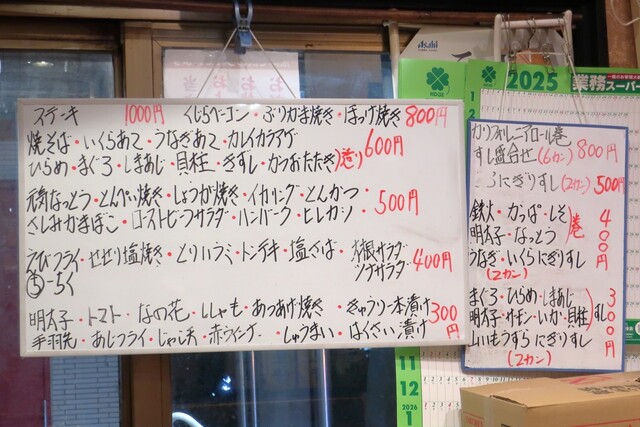 Asahi
2025
業務スーパー
ステーキ 1000円 くじらベーコン・ぶりかま焼き・ほっけ焼き 800円
焼そば・いくらあて・うなぎあて・カレイカラアゲ
ひらめ・まぐろ・しまあじ・貝柱・きずし・かつおたたき 造り 600円
元気なっとう・とんぺい焼き・しょうが焼き・イカリング・とんかつ・
さしみかまぼこ・ローストビーフサラダ・ハンバーグ・ヒレカツ・ 500円
えびフライ・せせり塩焼き・とりハラミ・トンテキ・塩さば・大根サラダ
ツナサラダ 400円
ち-ちく
明太子・トマト・なの花・ししゃも・あつあげ焼き・きゅうり一本漬け 300円
手羽先・あじフライ・じゃこ天・赤ウインナー・しゅうまい・はくさい漬け
カリフォルニアロール巻
すし盛合せ (6カン) 800円
にぎりすし (2カン) 500円
鉄火・かっぱ・しそ
明太子・なっとう 巻 400円
うなぎ・いくらにぎりすし
(2カン)
まぐろ・ひらめ・しまあじ
明太子・サーモン・いか・貝柱 すし 300円
山いもうずらにぎりすし
(2カン)
11
12
2026
1